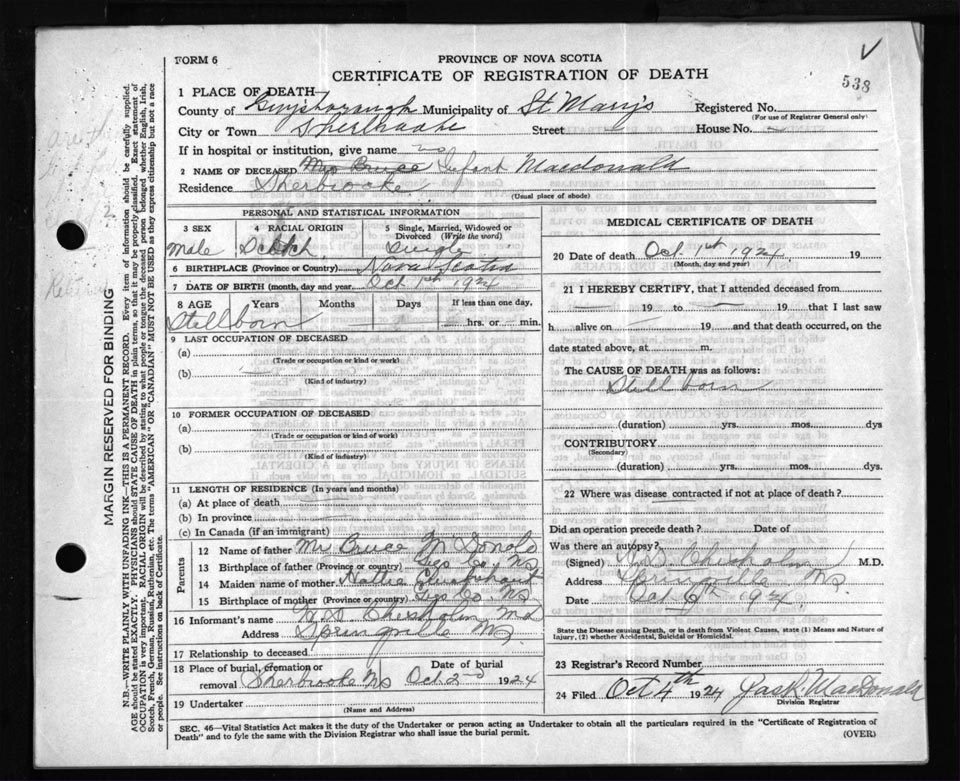 FORM 6
PROVINCE OF NOVA SCOTIA
CERTIFICATE OF REGISTRATION OF DEATH
538
1 PLACE OF DEATH—
County of Guysborough Municipality of St. Mary's Registered No.
(For use of Registrar General only)
City or Town Sherbrooke Street House No.
If in hospital or institution, give name no
2 NAME OF DECEASED Mrs Bruce Infant Macdonald
Residence Sherbrooke
(Usual place of abode)
PERSONAL AND STATISTICAL INFORMATION
3 SEX 4 RACIAL ORIGIN 5 Single, Married, Widowed or Divorced (Write the word)
Male Scotch Single
6 BIRTHPLACE (Province or Country) Nova Scotia
7 DATE OF BIRTH (month, day and year) Oct 1st 1924
8 AGE Years Months Days If less than one day,
Stillborn hrs. or min.
9 LAST OCCUPATION OF DECEASED
(a)
(Trade or occupation or kind or work)
(b)
(Kind of industry)
10 FORMER OCCUPATION OF DECEASED
(a)
(Trade or occupation or kind of work)
(b)
(Kind of industry)
11 LENGTH OF RESIDENCE (In years and months)
(a) At place of death
(b) In province
(c) In Canada (if an immigrant)
Parents
12 Name of father Mr Bruce McDonald
13 Birthplace of father (Province or country) Co. NS
14 Maiden name of mother Hattie
15 Birthplace of mother (Province or Country) Co NS
16 Informant's name Chisholm Md
Address Springville NS
17 Relationship to deceased
18 Place of burial, cremation or removal Sherbrooke NS Date of burial Oct 2nd 1924
19 Undertaker
(Name and Address)
MEDICAL CERTIFICATE OF DEATH
20 Date of death Oct 1st 1924 19
(Month, day and year)
21 I HEREBY CERTIFY, that I attended deceased from
19 to 19 that I last saw
h alive on 19 and that death occurred, on the
date stated above, at m.
The CAUSE OF DEATH was as follows:
Still born
(duration) yrs. mos. dys
CONTRIBUTORY
(Secondary)
(duration) yrs. mos. dys.
22 Where was disease contracted if not at place of death?
Did an operation precede death? Date of
Was there an autopsy?
(Signed) Chisholm M.D.
Address Springville NS
Date Oct 1924
State the Disease causing Death, or in death from Violent Causes, state (1) Means and Nature of Injury, (2) whether Accidental, Suicidal or Homicidal.
23 Registrar's Record Number
24 Filed Oct 4th 1924 Jas R. MacDonald
Division Registrar
SEC. 46—Vital Statistics Act makes it the duty of the Undertaker or person acting as Undertaker to obtain all the particulars required in the "Certificate of Registration of
Death" and to fyle the same with the Division Registrar who shall issue the burial permit.
(OVER)
MARGIN RESERVED FOR BINDING
N.B.—WRITE PLAINLY WITH UNFADING INK—THIS IS A PERMANENT RECORD. Every item of information should be carefully supplied.
AGE should be stated EXACTLY. PHYSICIANS should STATE CAUSE OF DEATH in plain terms, so that it may be properly classified. Exact statement of
OCCUPATION is very important. RACIAL ORIGIN will be described by stating to what people or tongue the deceased person belonged whether English, Irish,
Scotch, French, German, Russian, Ruthenian, etc. The terms "AMERICAN" OR "CANADIAN" MUST NOT BE USED as they express citizenship but not a race
or people. See instructions on back of Certificate.